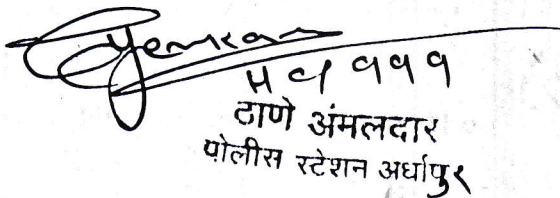 H C १११
ठाणे अंमलदार
पोलीस स्टेशन अर्धापुर